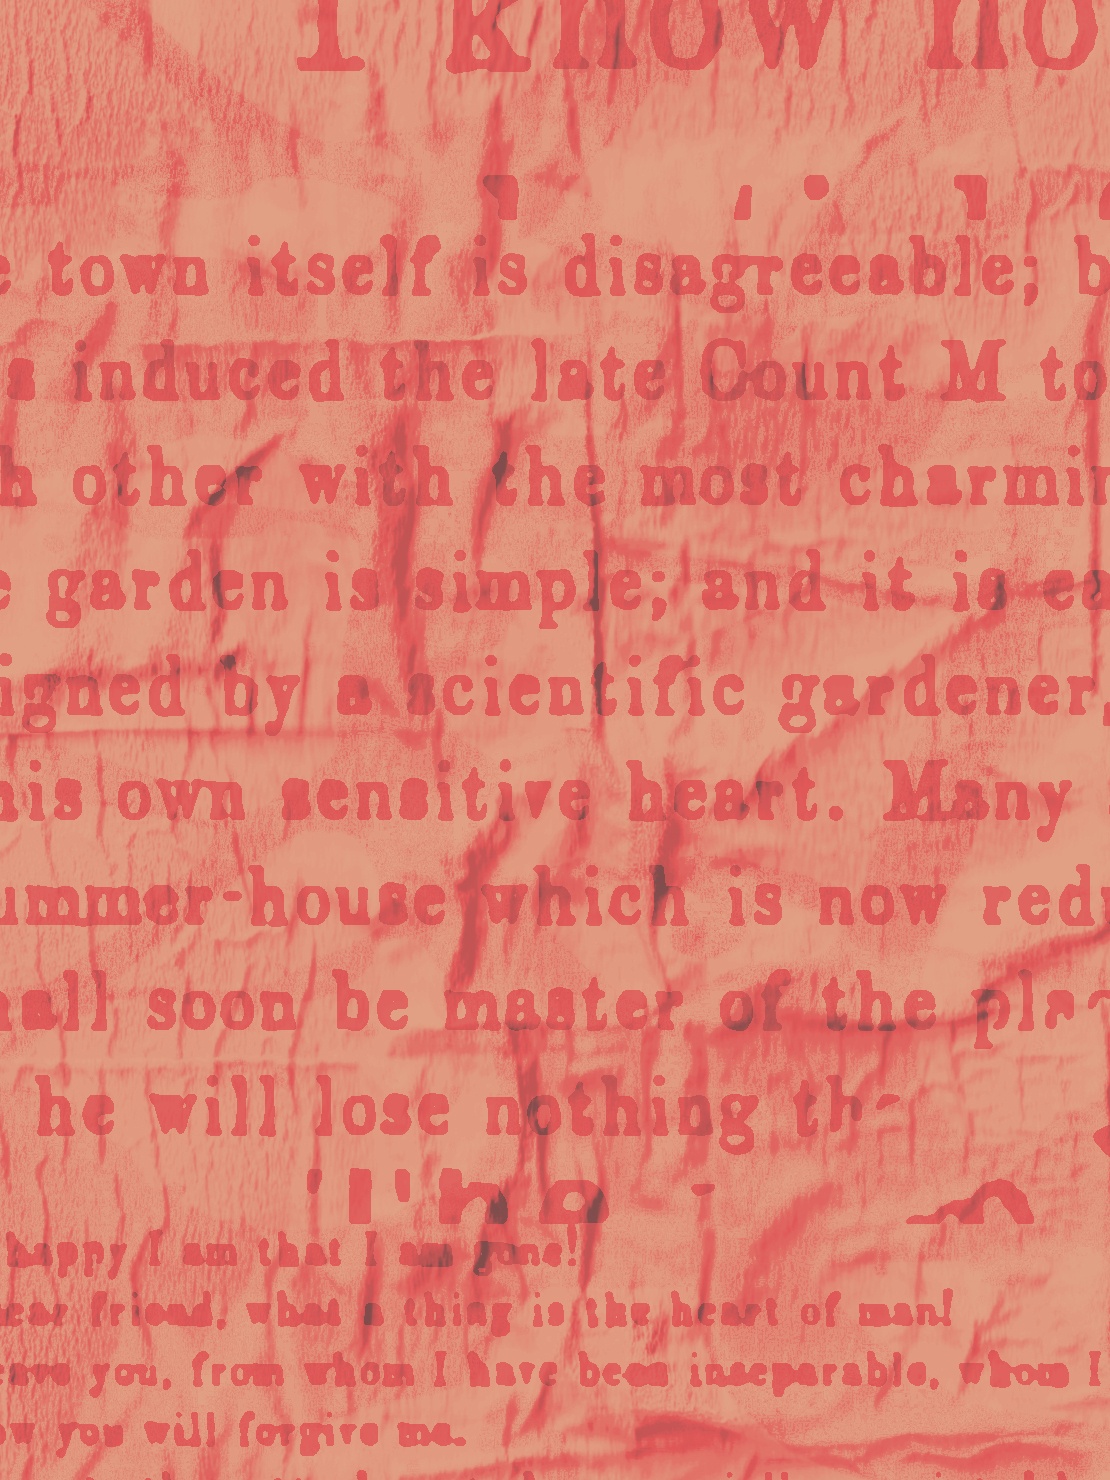 I know no
e town itself is disagreeable; b
s induced the late Count M to
h other with the most charmin
e garden is simple; and it is ea
igned by a scientific gardener,
his own sensitive heart. Many
ummer-house which is now redu
hall soon be master of the pla
he will lose nothing th
happy I am that I am gone!
ear friend, what a thing is the heart of man!
eave you, from whom I have been inseparable, whom I
ow you will forgive me.